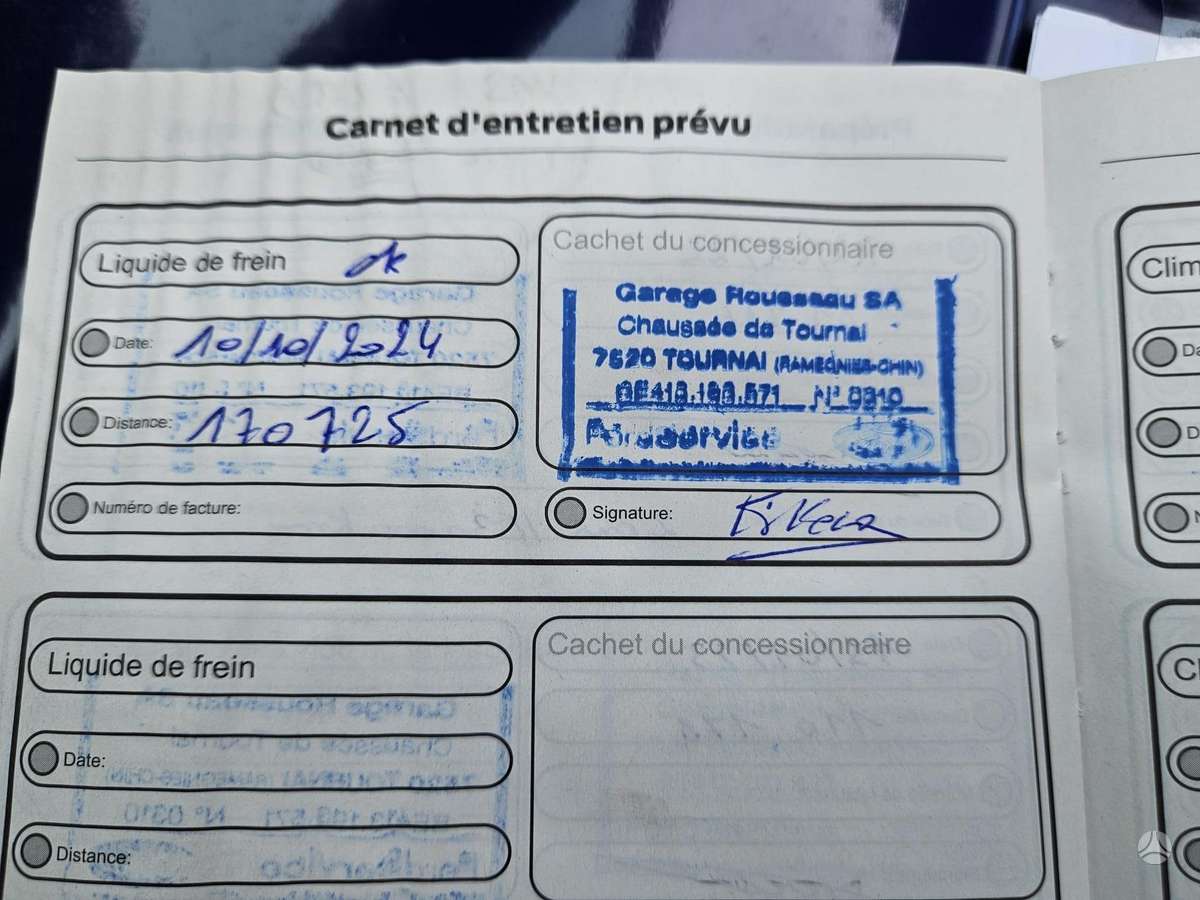 Carnet d'entretien prévu
Liquide de frein ok
Date: 10/10/2024
Distance: 170725
Numéro de facture:
Cachet du concessionnaire
Garage Rousseau SA
Chaussée de Tournai
7520 TOURNAI (RAMEGNIES-CHIN)
N° 0310
Signature:
Liquide de frein
Date:
Distance:
Cachet du concessionnaire